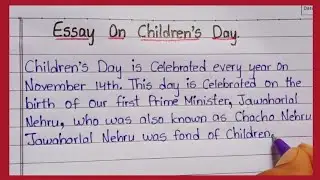 Essay On Children's Day.
Children's Day is Celebrated every year on
November 14th. This day is Celebrated on the
birth of our first Prime Minister, Jawaharlal
Nehru, who was also known as Chacha Nehru
Jawaharlal Nehru was fond of Children,